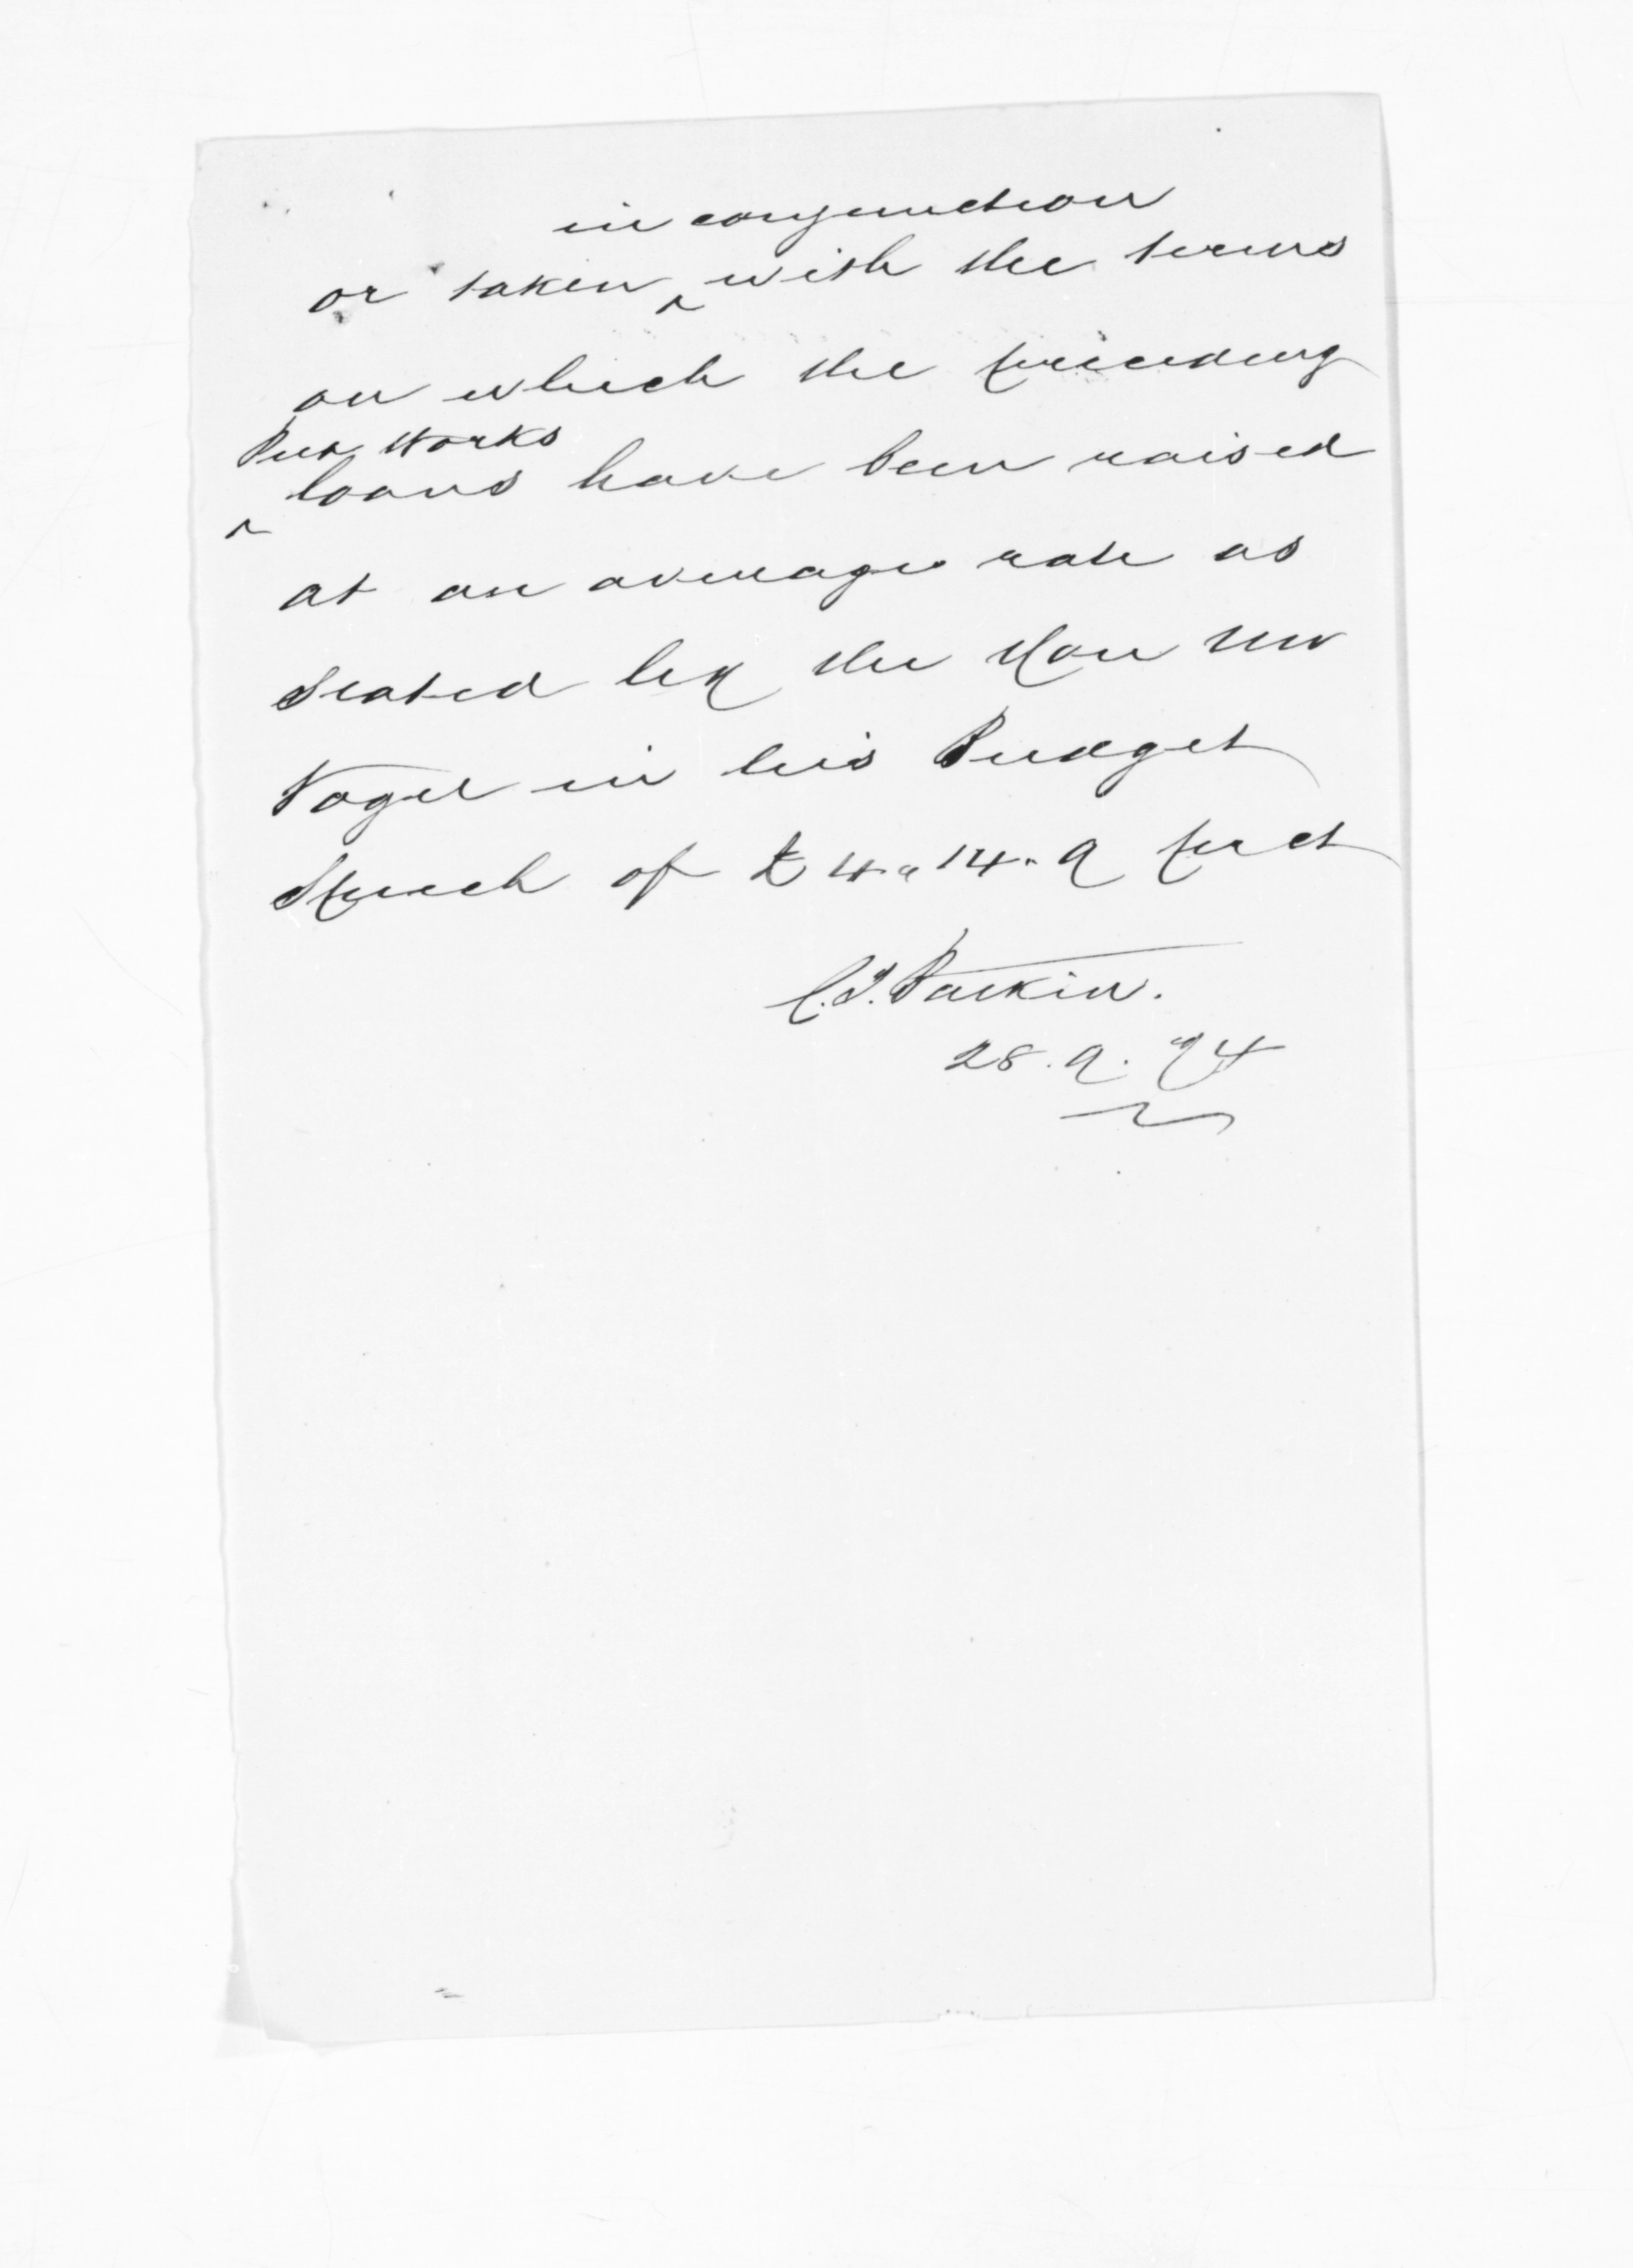 in conjunction
or taken ^ with the terms
on which the preceding
Pub Works
^ loans have been raised
at an average rate as
stated by the Hon Mr
Vogel in his Budget
Speech of £4.14.9 per ct
C.T. Batkin.
28.9.74